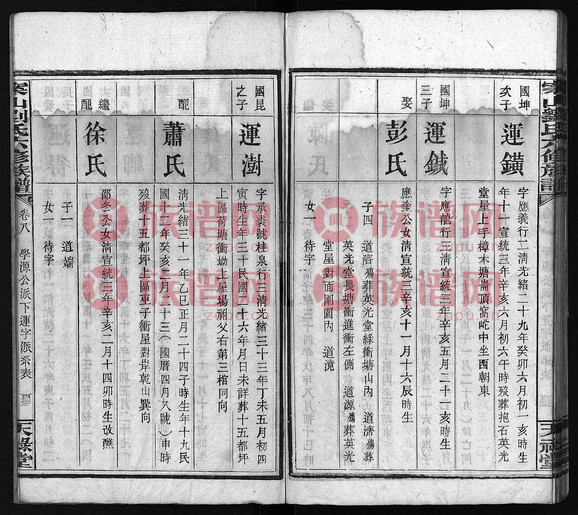 宋山劉氏六修族譜
國坤次子
運鐄
字應義行二清光緒二十九年癸卯六月初一亥時生
年十一宣統三年辛亥六月初六午時歿葬抱石英光
堂屋上手樟木塘崙頂窩屹中坐西朝東
國坤三子
運鋮
字應龍行三清宣統三年辛亥五月二十一亥時生
娶
彭氏
應奎公女清宣統三年辛亥十一月十六辰時生
子四
英光堂長塘衝進衝左側
堂屋對面園內
女一 待字
天祿堂
國昆之子
運澍
字承
號桂泉行三清光緒三十三年丁未五月初四
寅時生年三十民國三十六年月日未詳葬十五都坪
上區
塘衝坳上星場祖父右第三棺同向
配
蕭氏
清光緒三十一年乙巳正月二十四子時生年十九民
國十二年癸亥二月二十三(國曆四月八號)申時
歿葬十五都坪上區巫子衝屋對岸乾山巽向
繼配
徐氏
邵冬公女清宣統三年辛亥二月十四卯時生改醮
子一 道端
女一 待字
宋山劉氏六修族譜
卷八 學源公派下運字派系表
天祿堂
族谱网
族谱网
族谱网
族谱网